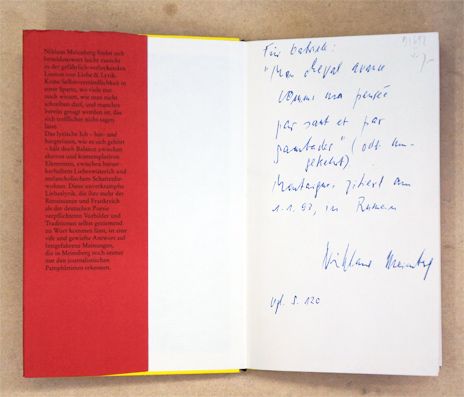 Niklaus Meienberg findet sich
bemerkenswert leicht zurecht
in der gefährlich-verlockenden
Liaison von Liebe & Lyrik.
Keine Selbstverständlichkeit in
einer Sparte, wo viele erst
noch wissen, wie man nicht
schreiben darf, und manches
bereits gesagt worden ist, das
sich trefflicher nicht sagen
lässt.
Das lyrische Ich – hin- und
hergerissen, wie es sich gehört
– hält doch Balance zwischen
und kontemplativen
Elementen, zwischen
und
melancholischem
wohner. Diese
Liebeslyrik, die ihre mehr der
Renaissance und Frankreich
als der deutschen Poesie
verpflichteten Vorbilder und
Traditionen selbst
zu Wort kommen lässt, ist eine
und gewiefte Antwort auf
festgefahrene Meinungen,
die in Meienberg noch immer
nur den journalistischen
Pamphletisten erkennen.
Für
"Mon cheval avance
comme ma pensée
par saut et par
gambades" (oder um-
gekehrt)
Montaigne, zitiert am
1.1.93, in
Niklaus Meienberg
Vgl. S. 120